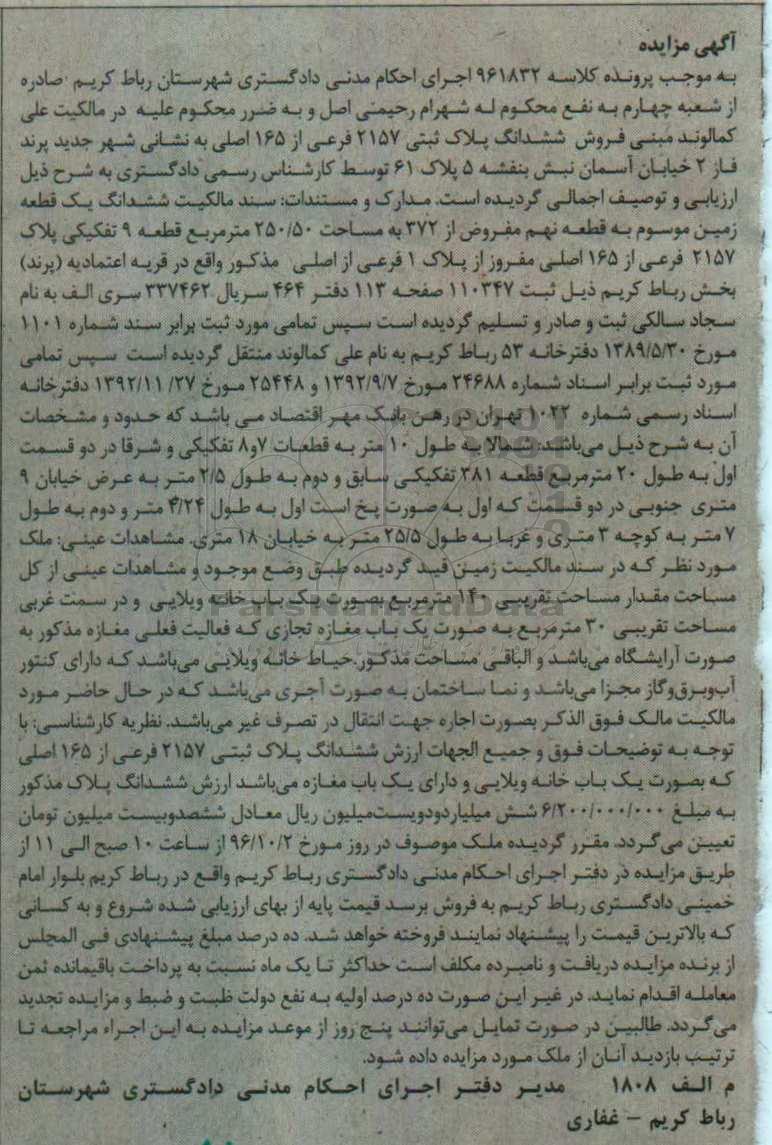 آگهی مزایده
به موجب پرونده کلاسه ۹۶۱۸۳۲ اجرای احکام مدنی دادگستری شهرستان رباط کریم صادره
از شعبه چهارم به نفع محکوم له شهرام رحیمی اصل و به ضرر محکوم علیه در مالکیت علی
کمالوند مبنی فروش ششدانگ پلاک ثبتی ۲۱۵۷ فرعی از ۱۶۵ اصلی به نشانی شهر جدید پرند
فاز ۲ خیابان آسمان نبش بنفشه ۵ پلاک ۶۱ توسط کارشناس رسمی دادگستری به شرح ذیل
ارزیابی و توصیف اجمالی گردیده است. مدارک و مستندات: سند مالکیت ششدانگ یک قطعه
زمین موسوم به قطعه نهم مفروض از ۳۷۲ به مساحت ۲۵۰/۵۰ مترمربع قطعه ۹ تفکیکی پلاک
۲۱۵۷ فرعی از ۱۶۵ اصلی مفروز از پلاک ۱ فرعی از اصلی مذکور واقع در قریه اعتمادیه (پرند)
بخش رباط کریم ذیل ثبت ۱۱۰۳۴۷ صفحه ۱۱۳ دفتر ۴۶۴ سریال ۳۳۷۴۶۲ سری الف به نام
سجاد سالکی ثبت و صادر و تسلیم گردیده است سپس تمامی مورد ثبت برابر سند شماره ۱۱۰۱
مورخ ۱۳۸۹/۵/۳۰ دفترخانه ۵۳ رباط کریم به نام علی کمالوند منتقل گردیده است سپس تمامی
مورد ثبت برابر اسناد شماره ۲۴۶۸۸ مورخ ۱۳۹۲/۹/۷ و ۲۵۴۴۸ مورخ ۲۷/ ۱۳۹۲/۱۱ دفترخانه
اسناد رسمی شماره ۱۰۲۲ تهران در رهن بانک مهر اقتصاد می باشد که حدود و مشخصات
آن به شرح ذیل می‌باشد: شمالا به طول ۱۰ متر به قطعات ۷و۸ تفکیکی و شرقا در دو قسمت
اول به طول ۲۰ مترمربع قطعه ۳۸۱ تفکیکی سابق و دوم به طول ۲/۵ متر به عرض خیابان ۹
متری جنوبی در دو قسمت که اول به صورت پخ است اول به طول ۴/۲۴ متر و دوم به طول
۷ متر به کوچه ۳ متری و غربا به طول ۲۵/۵ متر به خیابان ۱۸ متری. مشاهدات عینی: ملک
مورد نظر که در سند مالکیت زمین قید گردیده طبق وضع موجود و مشاهدات عینی از کل
مساحت مقدار مساحت تقریبی ۱۴۰ مترمربع بصورت یک باب خانه ویلایی و در سمت غربی
مساحت تقریبی ۳۰ مترمربع به صورت یک باب مغازه تجاری که فعالیت فعلی مغازه مذکور به
صورت آرایشگاه می‌باشد و الباقی مساحت مذکور.حیاط خانه ویلایی می‌باشد که دارای کنتور
آب‌وبرق‌وگاز مجزا می‌باشد و نما ساختمان به صورت آجری می‌باشد که در حال حاضر مورد
مالکیت مالک فوق الذکر بصورت اجاره جهت انتقال در تصرف غیر می‌باشد. نظریه کارشناسی: با
توجه به توضیحات فوق و جمیع الجهات ارزش ششدانگ پلاک ثبتی ۲۱۵۷ فرعی از ۱۶۵ اصلی
که بصورت یک باب خانه ویلایی و دارای یک باب مغازه می‌باشد ارزش ششدانگ پلاک مذکور
به مبلغ ۶/۲۰۰/۰۰۰/۰۰۰ شش میلیاردودویست‌میلیون ریال معادل ششصدوبیست میلیون تومان
تعیین می‌گردد. مقرر گردیده ملک موصوف در روز مورخ ۹۶/۱۰/۲ از ساعت ۱۰ صبح الی ۱۱ از
طریق مزایده در دفتر اجرای احکام مدنی دادگستری رباط کریم واقع در رباط کریم بلوار امام
خمینی دادگستری رباط کریم به فروش برسد قیمت پایه از بهای ارزیابی شده شروع و به کسانی
که بالاترین قیمت را پیشنهاد نمایند فروخته خواهد شد. ده درصد مبلغ پیشنهادی فی المجلس
از برنده مزایده دریافت و نامبرده مکلف است حداکثر تا یک ماه نسبت به پرداخت باقیمانده ثمن
معامله اقدام نماید. در غیر این صورت ده درصد اولیه به نفع دولت ظبت و ضبط و مزایده تجدید
می‌گردد. طالبین در صورت تمایل می‌توانند پنج روز از موعد مزایده به این اجراء مراجعه تا
ترتیب بازدید آنان از ملک مورد مزایده داده شود.
م الف ۱۸۰۸ مدیر دفتر اجرای احکام مدنی دادگستری شهرستان
رباط کریم – غفاری
ParsNamadData